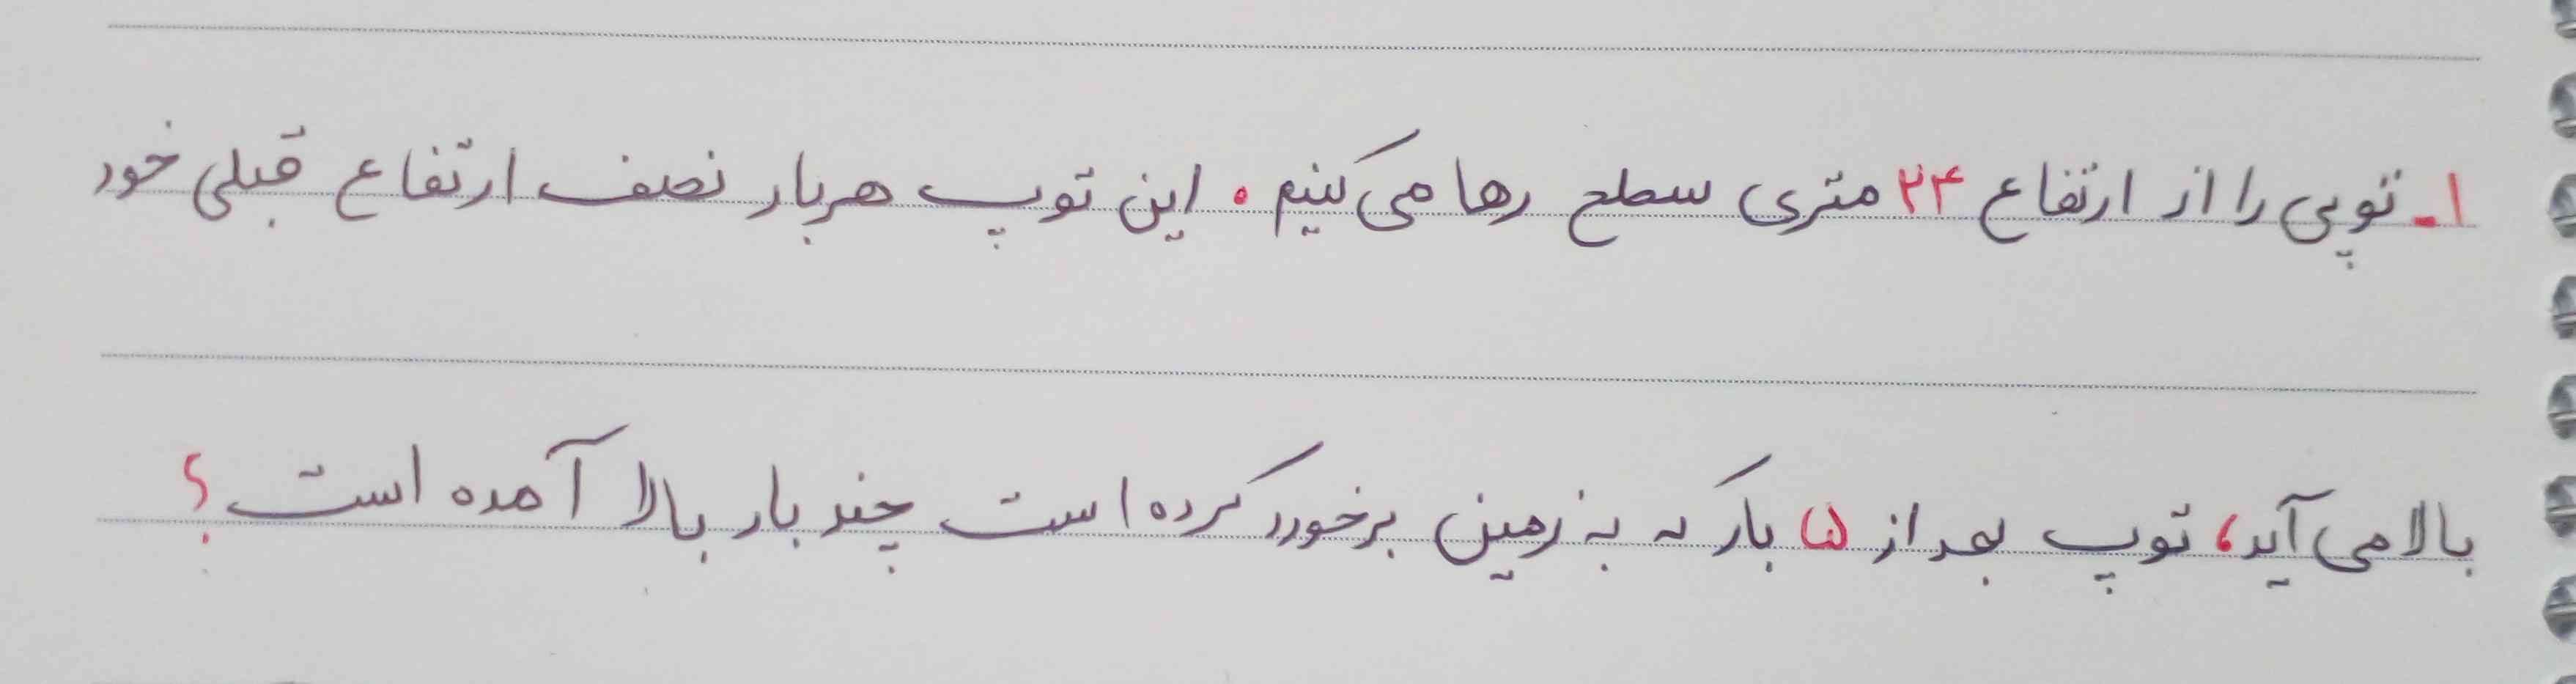 ۱- توپی را از ارتفاع ۲۴ متری سطح رها می‌کنیم. این توپ هربار نصف ارتفاع قبلی خود
بالا می‌آید، توپ بعد از ۵ بار که به زمین برخورد کرده است چند بار بالا آمده است؟